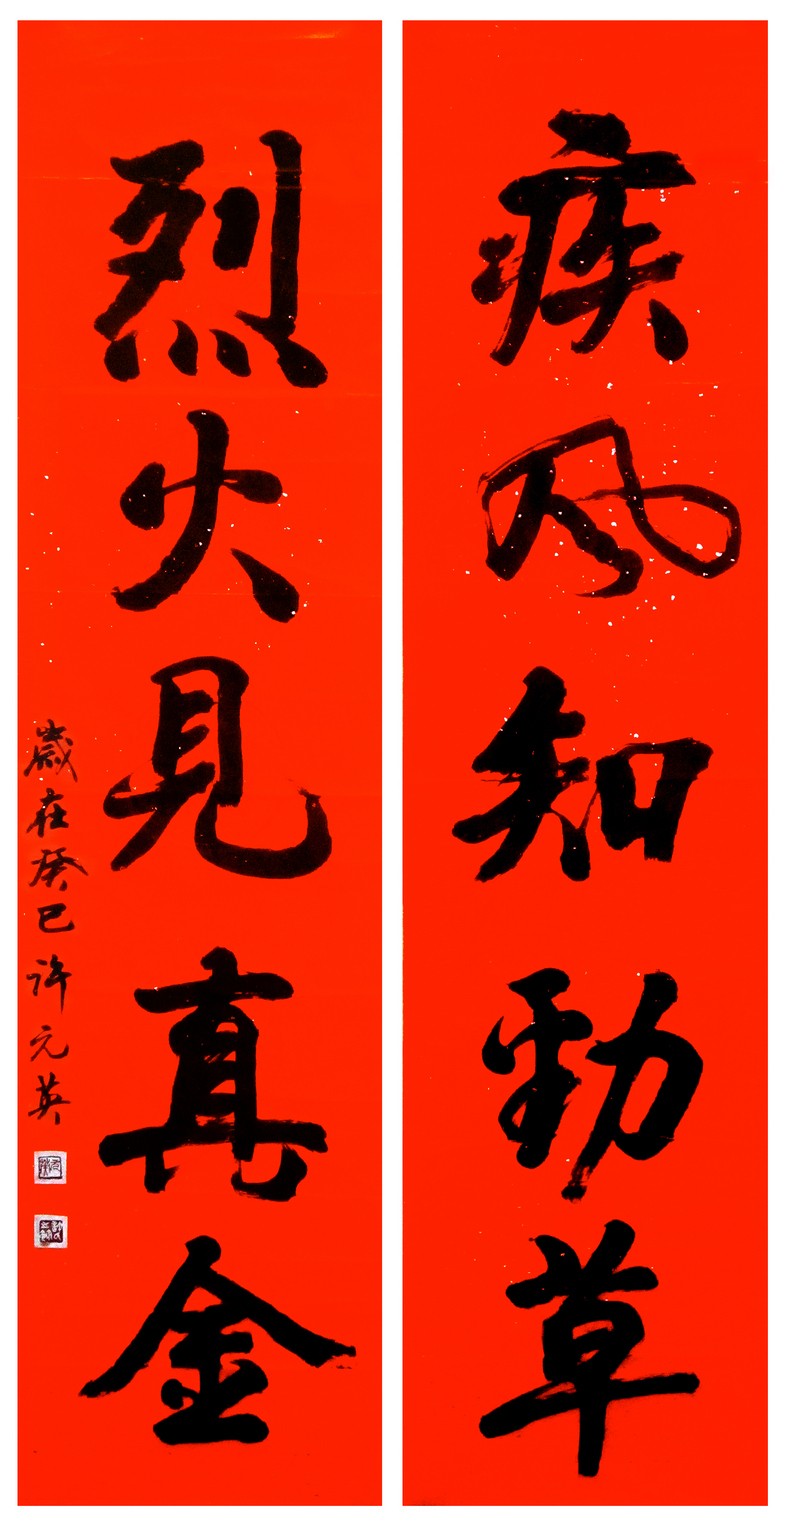 疾风知劲草
烈火見真金
歲在癸巳许元英